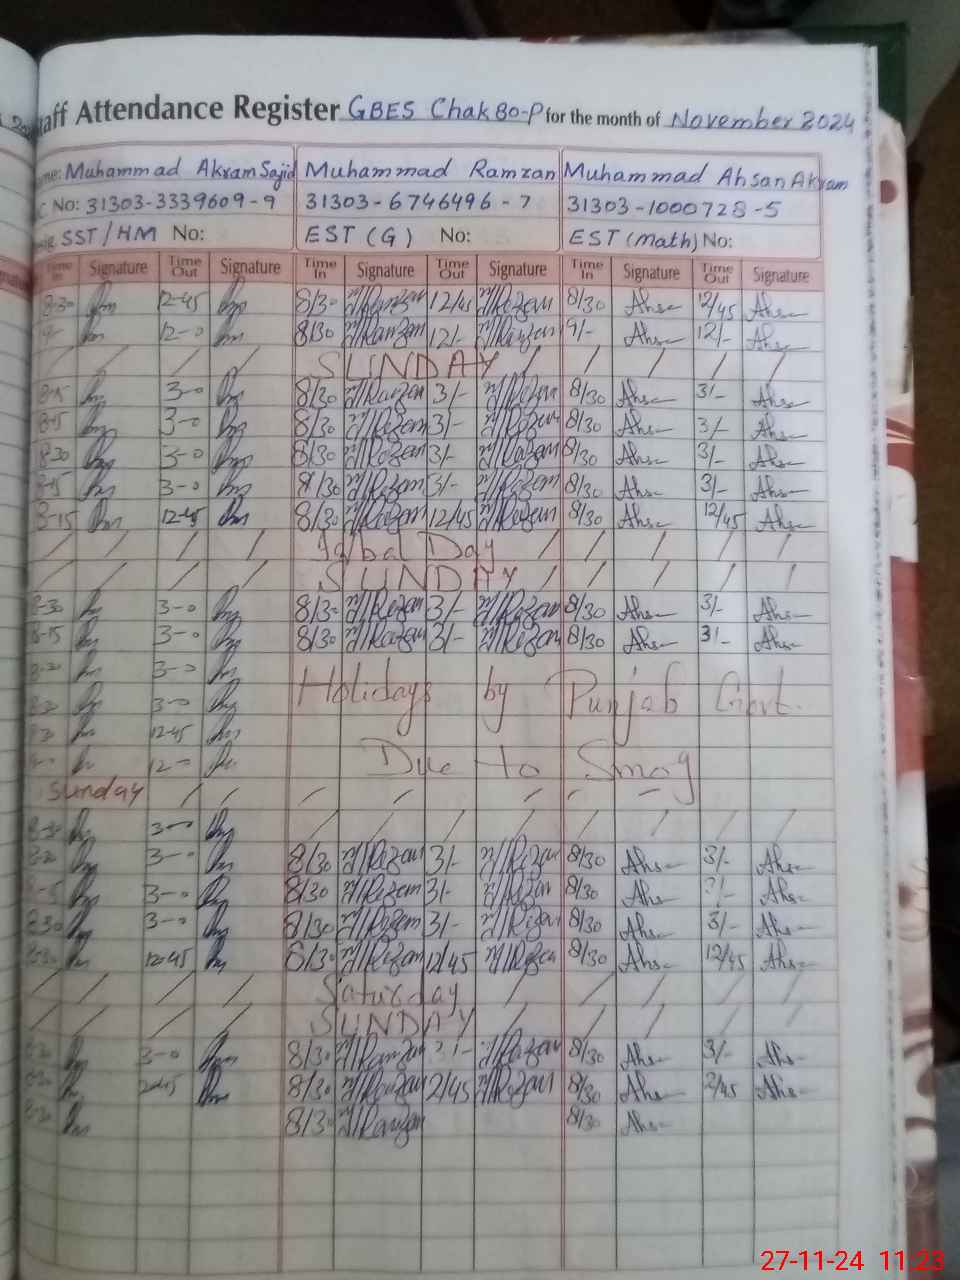 taff Attendance Register GBES Chak 80-P for the month of November 2024
me: Muhammad Akram Sajid Muhammad Ramzan Muhammad Ahsan Akram
C No: 31303-3339609-9 31303-6746496-7 31303-1000728-5
SST/HM No: EST (G) No: EST (math) No:
Time In Signature Time Out Signature Time In Signature Time Out Signature Time In Signature Time Out Signature
8-30 12-45 8/30 M/Ramzan 12/45 M/Ramzan 8/30 Ahsan 12/45 Ahsan
9- 12-0 8/30 M/Ramzan 12/- M/Ramzan 9/- Ahsan 12/- Ahsan
/ / / / SUNDAY / / / / /
8-15 3-0 8/30 M/Ramzan 3/- M/Ramzan 8/30 Ahsan 3/- Ahsan
8-15 3-0 8/30 M/Ramzan 3/- M/Ramzan 8/30 Ahsan 3/- Ahsan
8-30 3-0 8/30 M/Ramzan 3/- M/Ramzan 8/30 Ahsan 3/- Ahsan
8-15 3-0 8/30 M/Ramzan 3/- M/Ramzan 8/30 Ahsan 3/- Ahsan
8-15 12-45 8/30 M/Ramzan 12/45 M/Ramzan 8/30 Ahsan 12/45 Ahsan
/ / / / Iqbal Day / / / / /
/ / / / SUNDAY / / / / /
8-30 3-0 8/30 M/Ramzan 3/- M/Ramzan 8/30 Ahsan 3/- Ahsan
8-15 3-0 8/30 M/Ramzan 3/- M/Ramzan 8/30 Ahsan 3/- Ahsan
8-30 3-0
Holidays by Punjab Govt.
8-30 3-0
8-30 12-45
12-0 Due to Smog
Sunday / / / / / / -
8-30 3-0 / / / / / / / /
8-30 3-0 8/30 M/Ramzan 3/- M/Ramzan 8/30 Ahsan 3/- Ahsan
3-0 8/30 M/Ramzan 3/- M/Ramzan 8/30 Ahsan Ahsan
8-30 3-0 8/30 M/Ramzan 3/- M/Ramzan 8/30 Ahsan 3/- Ahsan
8-30 12-45 8/30 M/Ramzan 12/45 M/Ramzan 8/30 Ahsan 12/45 Ahsan
/ / / / Saturday / / / / /
/ / / / SUNDAY / / / / /
8-30 3-0 8/30 M/Ramzan 3/- M/Ramzan 8/30 Ahsan 3/- Ahsan
8-30 2-45 8/30 M/Ramzan 2/45 M/Ramzan 8/30 Ahsan 2/45 Ahsan
8-30 8/30 M/Ramzan 8/30 Ahsan
27-11-24 11:23